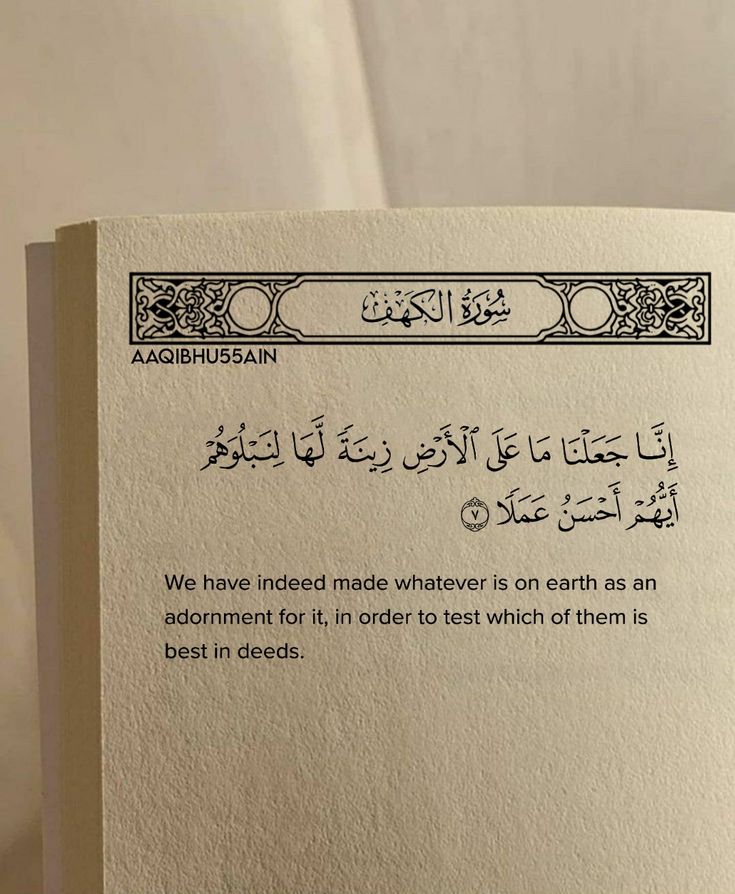 سُورَةُ الكَهْفِ
AAQIBHU55AIN
إِنَّا جَعَلْنَا مَا عَلَى ٱلْأَرْضِ زِينَةً لَّهَا لِنَبْلُوَهُمْ
أَيُّهُمْ أَحْسَنُ عَمَلًا ٧
We have indeed made whatever is on earth as an
adornment for it, in order to test which of them is
best in deeds.